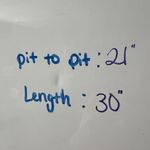 pit to pit : 21"
Length : 30"